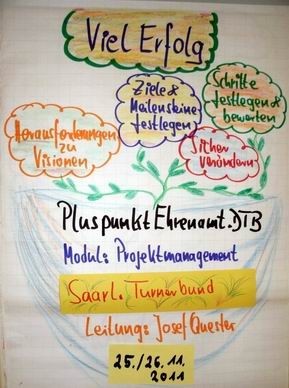 Viel Erfolg
Ziele &
Meilensteine
festlegen
Schritte
festlegen &
bewerten
Herausforderungen
zu
Visionen
Sicher
verändern
Pluspunkt Ehrenamt. DTB
Modul: Projektmanagement
Saarl. Turnerbund
Leitung: Josef Quester
25./26. 11.
2011